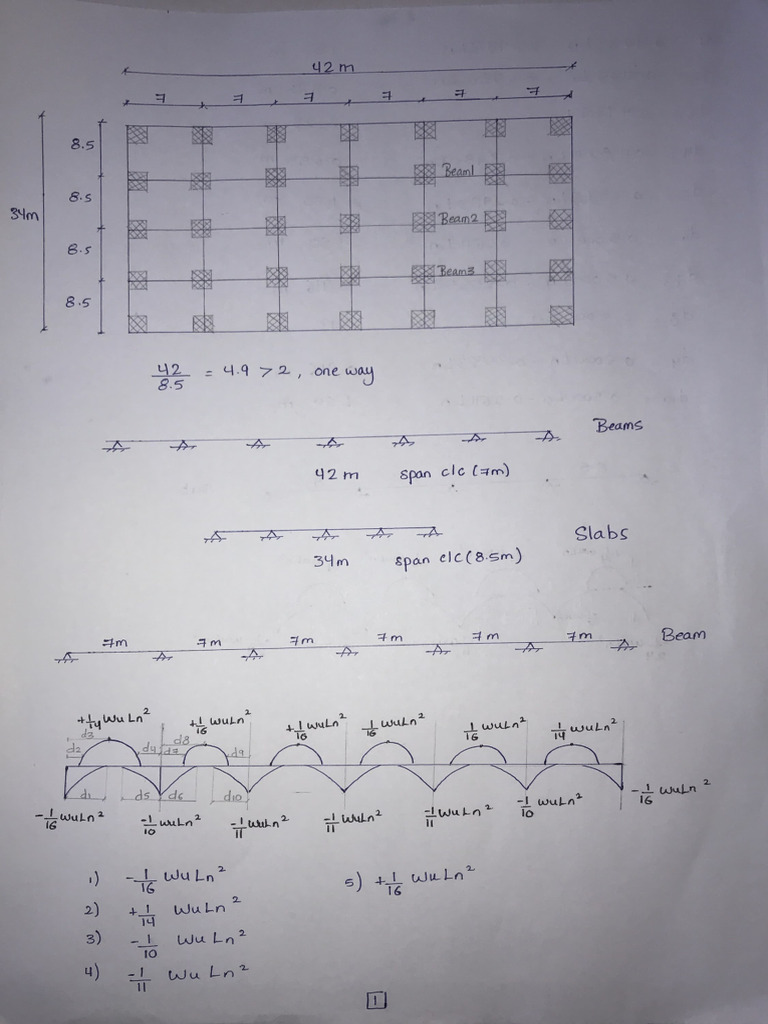 42 m
7 7 7 7 7 7
8.5
Beam1
34m
8.5
Beam2
8.5
Beam3
8.5
42/8.5 = 4.9 > 2, one way
Beams
42 m span c/c (7m)
Slabs
34m span c/c (8.5m)
7m 7m 7m 7m 7m 7m Beam
+1/14 WuLn² +1/16 WuLn² +1/16 WuLn² 1/16 WuLn² 1/16 WuLn² 1/14 WuLn²
d3 d8
d2 d4 d7 d9
d1 d5 d6 d10
-1/16 WuLn² -1/10 WuLn² -1/11 WuLn² -1/11 WuLn² -1/11 WuLn² -1/10 WuLn² -1/16 WuLn²
1) -1/16 WuLn² 5) +1/16 WuLn²
2) +1/14 WuLn²
3) -1/10 WuLn²
4) -1/11 WuLn²
1